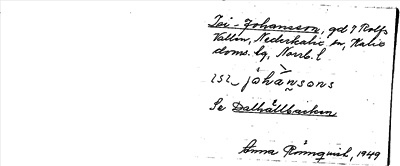 Isi-Johansson, gd i Rolfs
Vallen, Nederkalix sn, Kalix
doms. lg, Norrb. l
ɪsɪ jòhànsons
Se Dalhällbacken
Anna Rönnquist, 1949